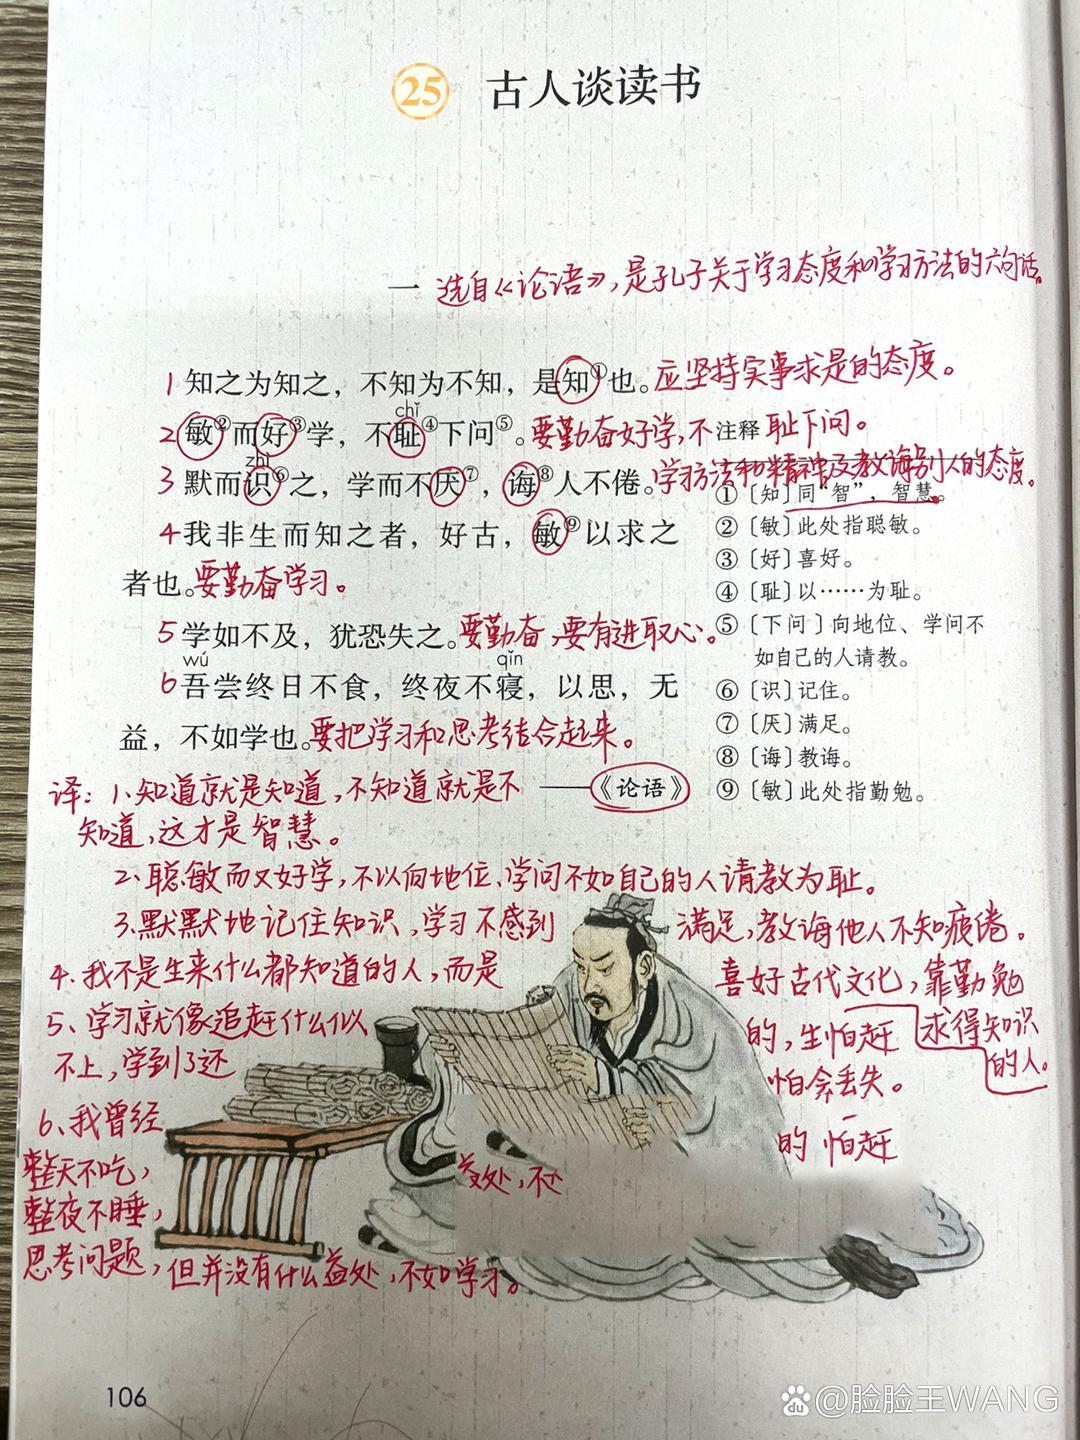 25 古人谈读书
一 选自《论语》，是孔子关于学习态度和学习方法的六句话。
1 知之为知之，不知为不知，是知①也。应坚持实事求是的态度。
chǐ
2 敏②而好③学，不耻④下问⑤。要勤奋好学，不耻下问。
zhì
3 默而识⑥之，学而不厌⑦，诲⑧人不倦。学习方法和精神及教诲别人的态度。
4 我非生而知之者，好古，敏⑨以求之
者也。要勤奋学习。
5 学如不及，犹恐失之。要勤奋，要有进取心。
wú qǐn
6 吾尝终日不食，终夜不寝，以思，无
益，不如学也。要把学习和思考结合起来。
——《论语》
注释
①〔知〕同“智”，智慧。
②〔敏〕此处指聪敏。
③〔好〕喜好。
④〔耻〕以……为耻。
⑤〔下问〕向地位、学问不
如自己的人请教。
⑥〔识〕记住。
⑦〔厌〕满足。
⑧〔诲〕教诲。
⑨〔敏〕此处指勤勉。
译：1、知道就是知道，不知道就是不
知道，这才是智慧。
2、聪敏而又好学，不以向地位、学问不如自己的人请教为耻。
3、默默地记住知识，学习不感到满足，教诲他人不知疲倦。
4、我不是生来什么都知道的人，而是喜好古代文化，靠勤勉
求得知识
的人。
5、学习就像追赶什么似的，生怕赶
不上，学到了还怕会丢失。
的 怕赶
6、我曾经
整天不吃，
益处，不
整夜不睡，
思考问题，但并没有什么益处，不如学习。
106
Bai du @脸脸王WANG